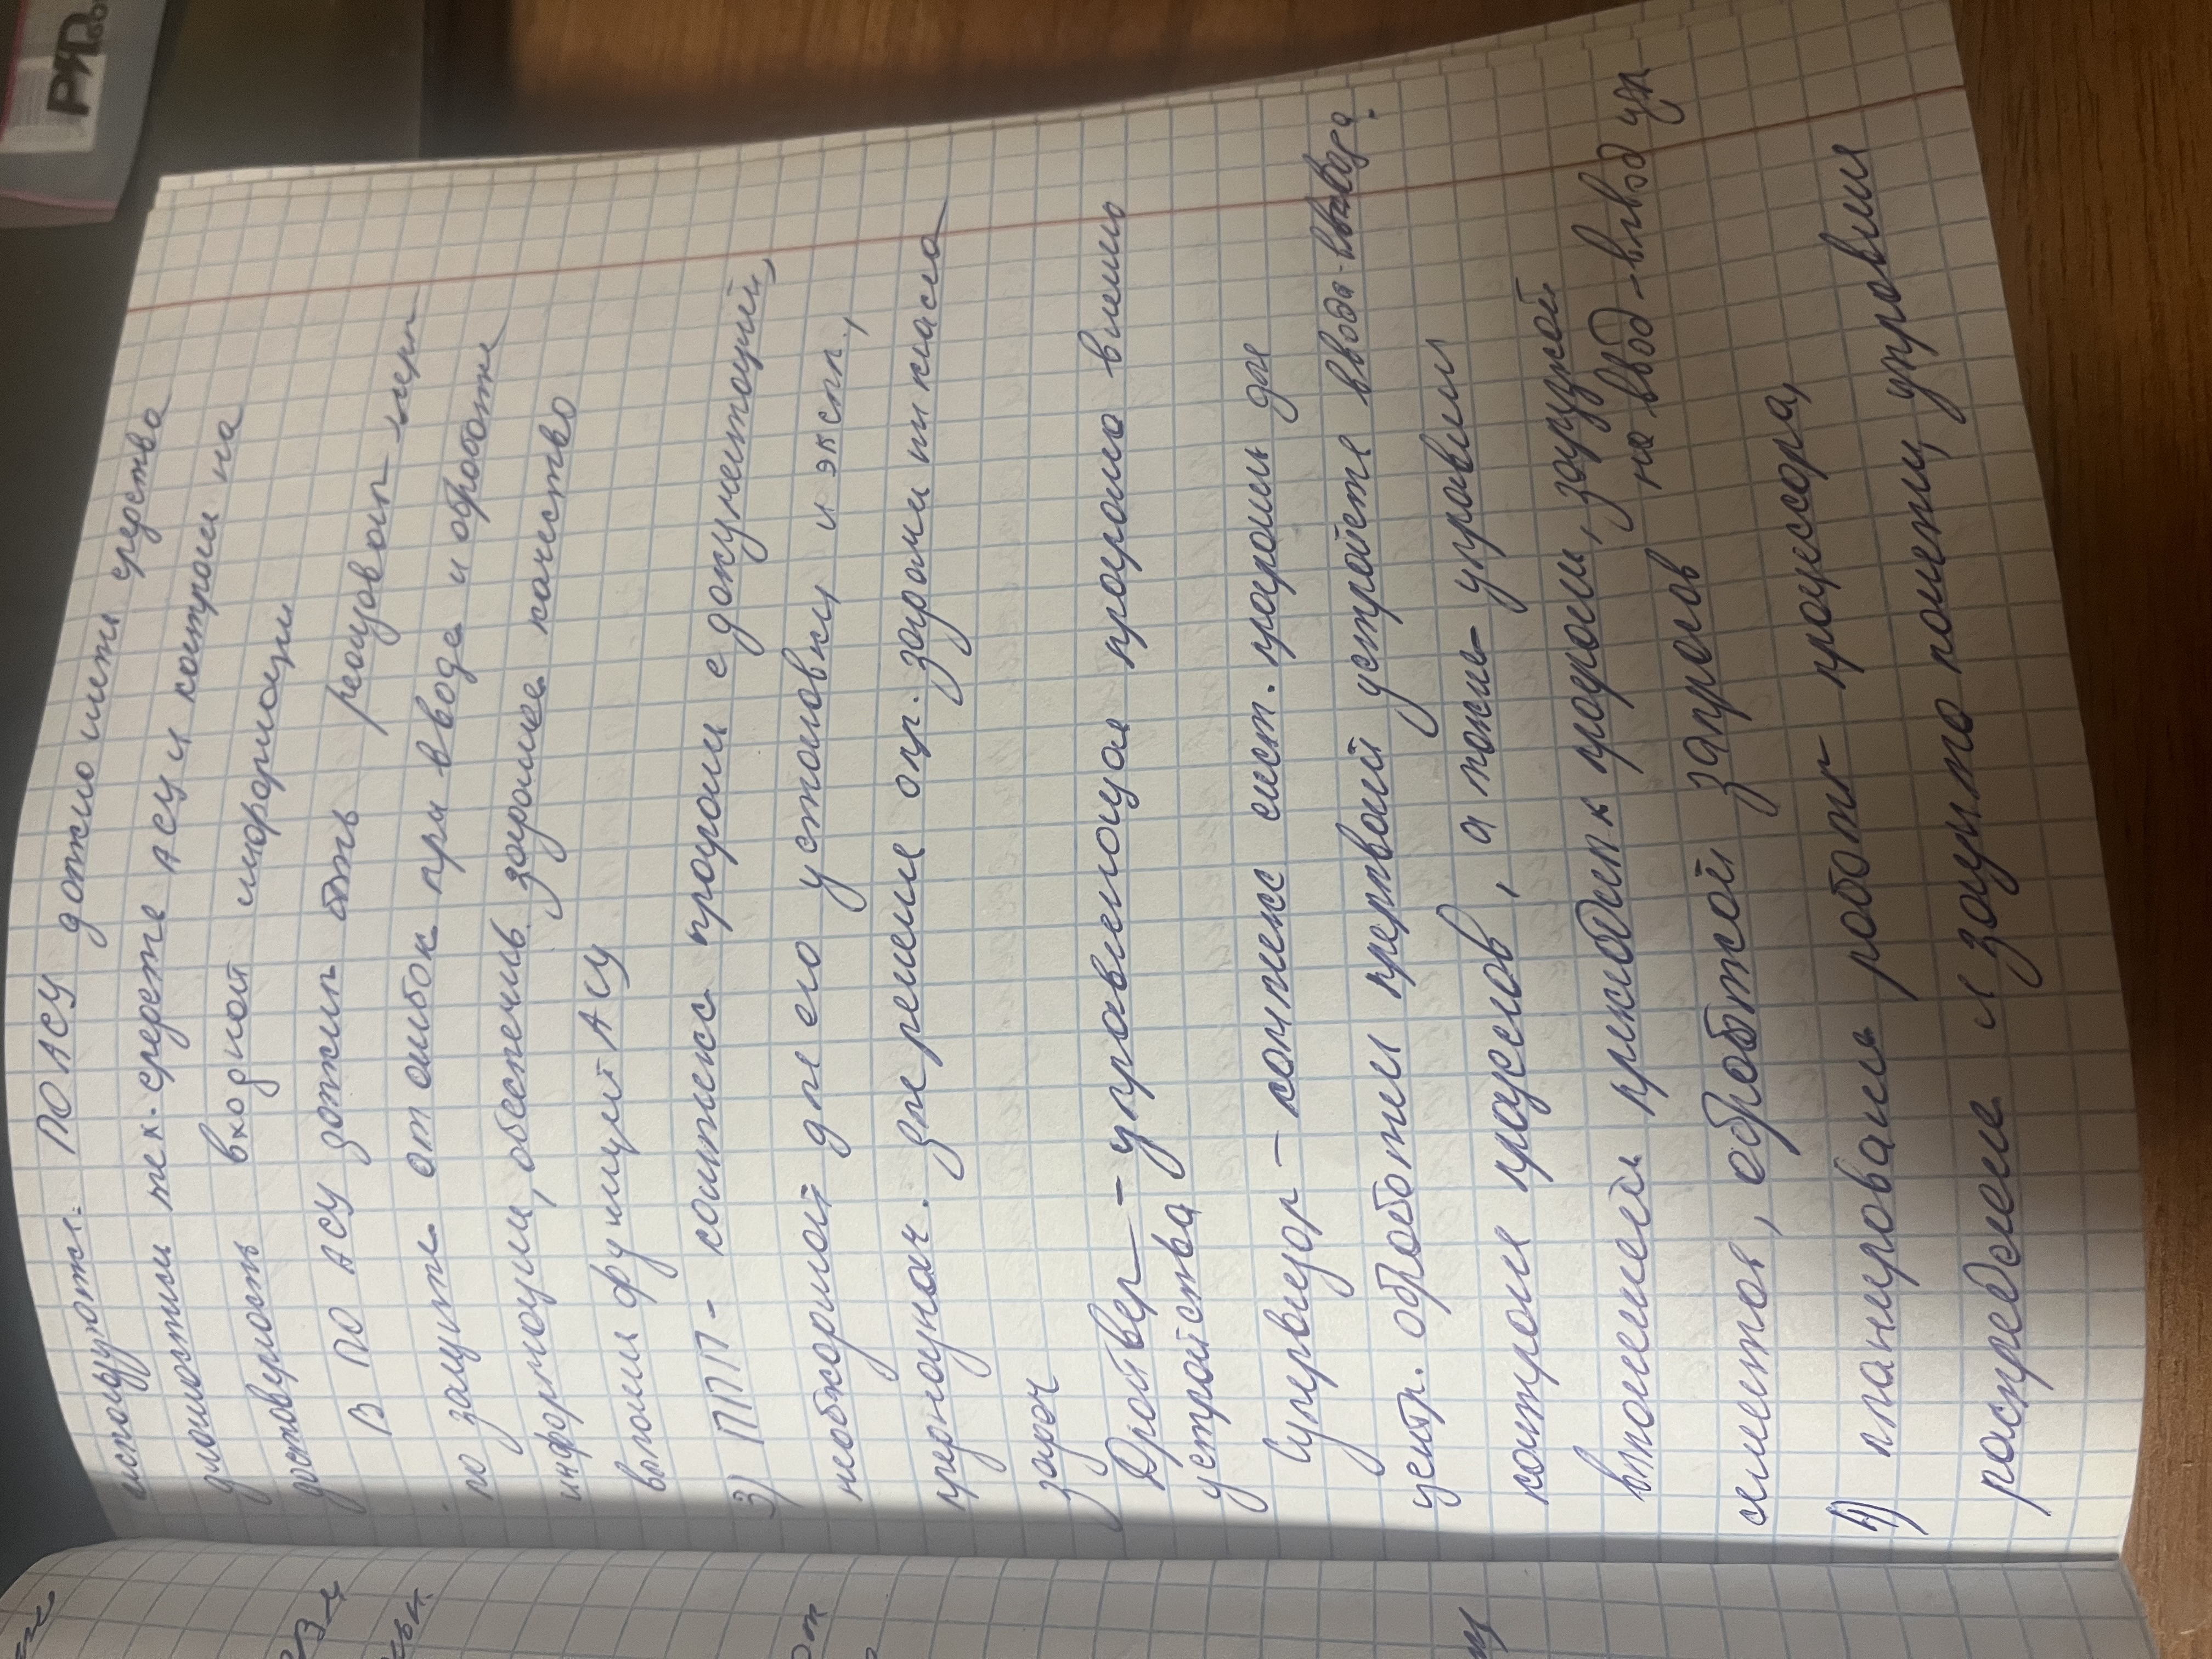 используются. ПО АСУ должно иметь средства
диагностики тех. средств АСУ и контроля на
достоверность входной информации
В ПО АСУ должны быть реализованы меры
по защите от ошибок при вводе и обработке
информации, обеспечив. заданное качество
выполн функций АСУ
3) ППП - комплекс программ с документацией,
необходимой для его установки и эксп.,
предназнач. для решения опр. задачи или класса
задач
Драйвер - управляющая программа внешнего
устройства
Супервизор - комплекс сист. программ для
центр. обработки прерываний устройств ввода-вывода.
контроля процессов, а также управления
выполнением привод программ, загрузкой
на ввод-вывод
сегментов, обработкой запросов
4) планирование работы процессора,
распределение и защита памяти, управления
PЯD